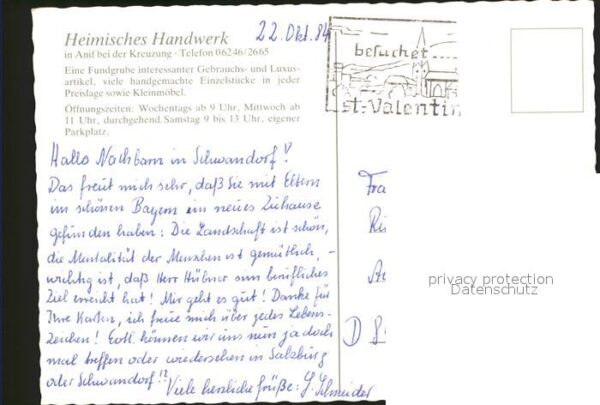 22. Okt. 84
Heimisches Handwerk
in Anif bei der Kreuzung · Telefon 06246/2665
Eine Fundgrube interessanter Gebrauchs- und Luxus-
artikel, viele handgemachte Einzelstücke in jeder
Preislage sowie Kleinmöbel.
Öffnungszeiten: Wochentags ab 9 Uhr, Mittwoch ab
11 Uhr, durchgehend. Samstag 9 bis 13 Uhr, eigener
Parkplatz.
besuchet....
st. Valentin
Hallo Nachbarn in Schwandorf!
Das freut mich sehr, daß Sie mit Eltern
im schönen Bayern ein neues Zuhause
gefunden haben: Die Landschaft ist schön,
die Mentalität der Menschen ist gemütlich, -
wichtig ist, daß Herr Hübner sein berufliches
Ziel erreicht hat! Mir geht es gut! Danke für
Ihre Karten, ich freue mich über jedes Lebens-
zeichen! Evtl. können wir uns nun ja doch
mal treffen oder wiedersehen in Salzburg
oder Schwandorf!?
Viele herzliche Grüße: Schneider
Fra
Ris
D 8
privacy protection
Datenschutz